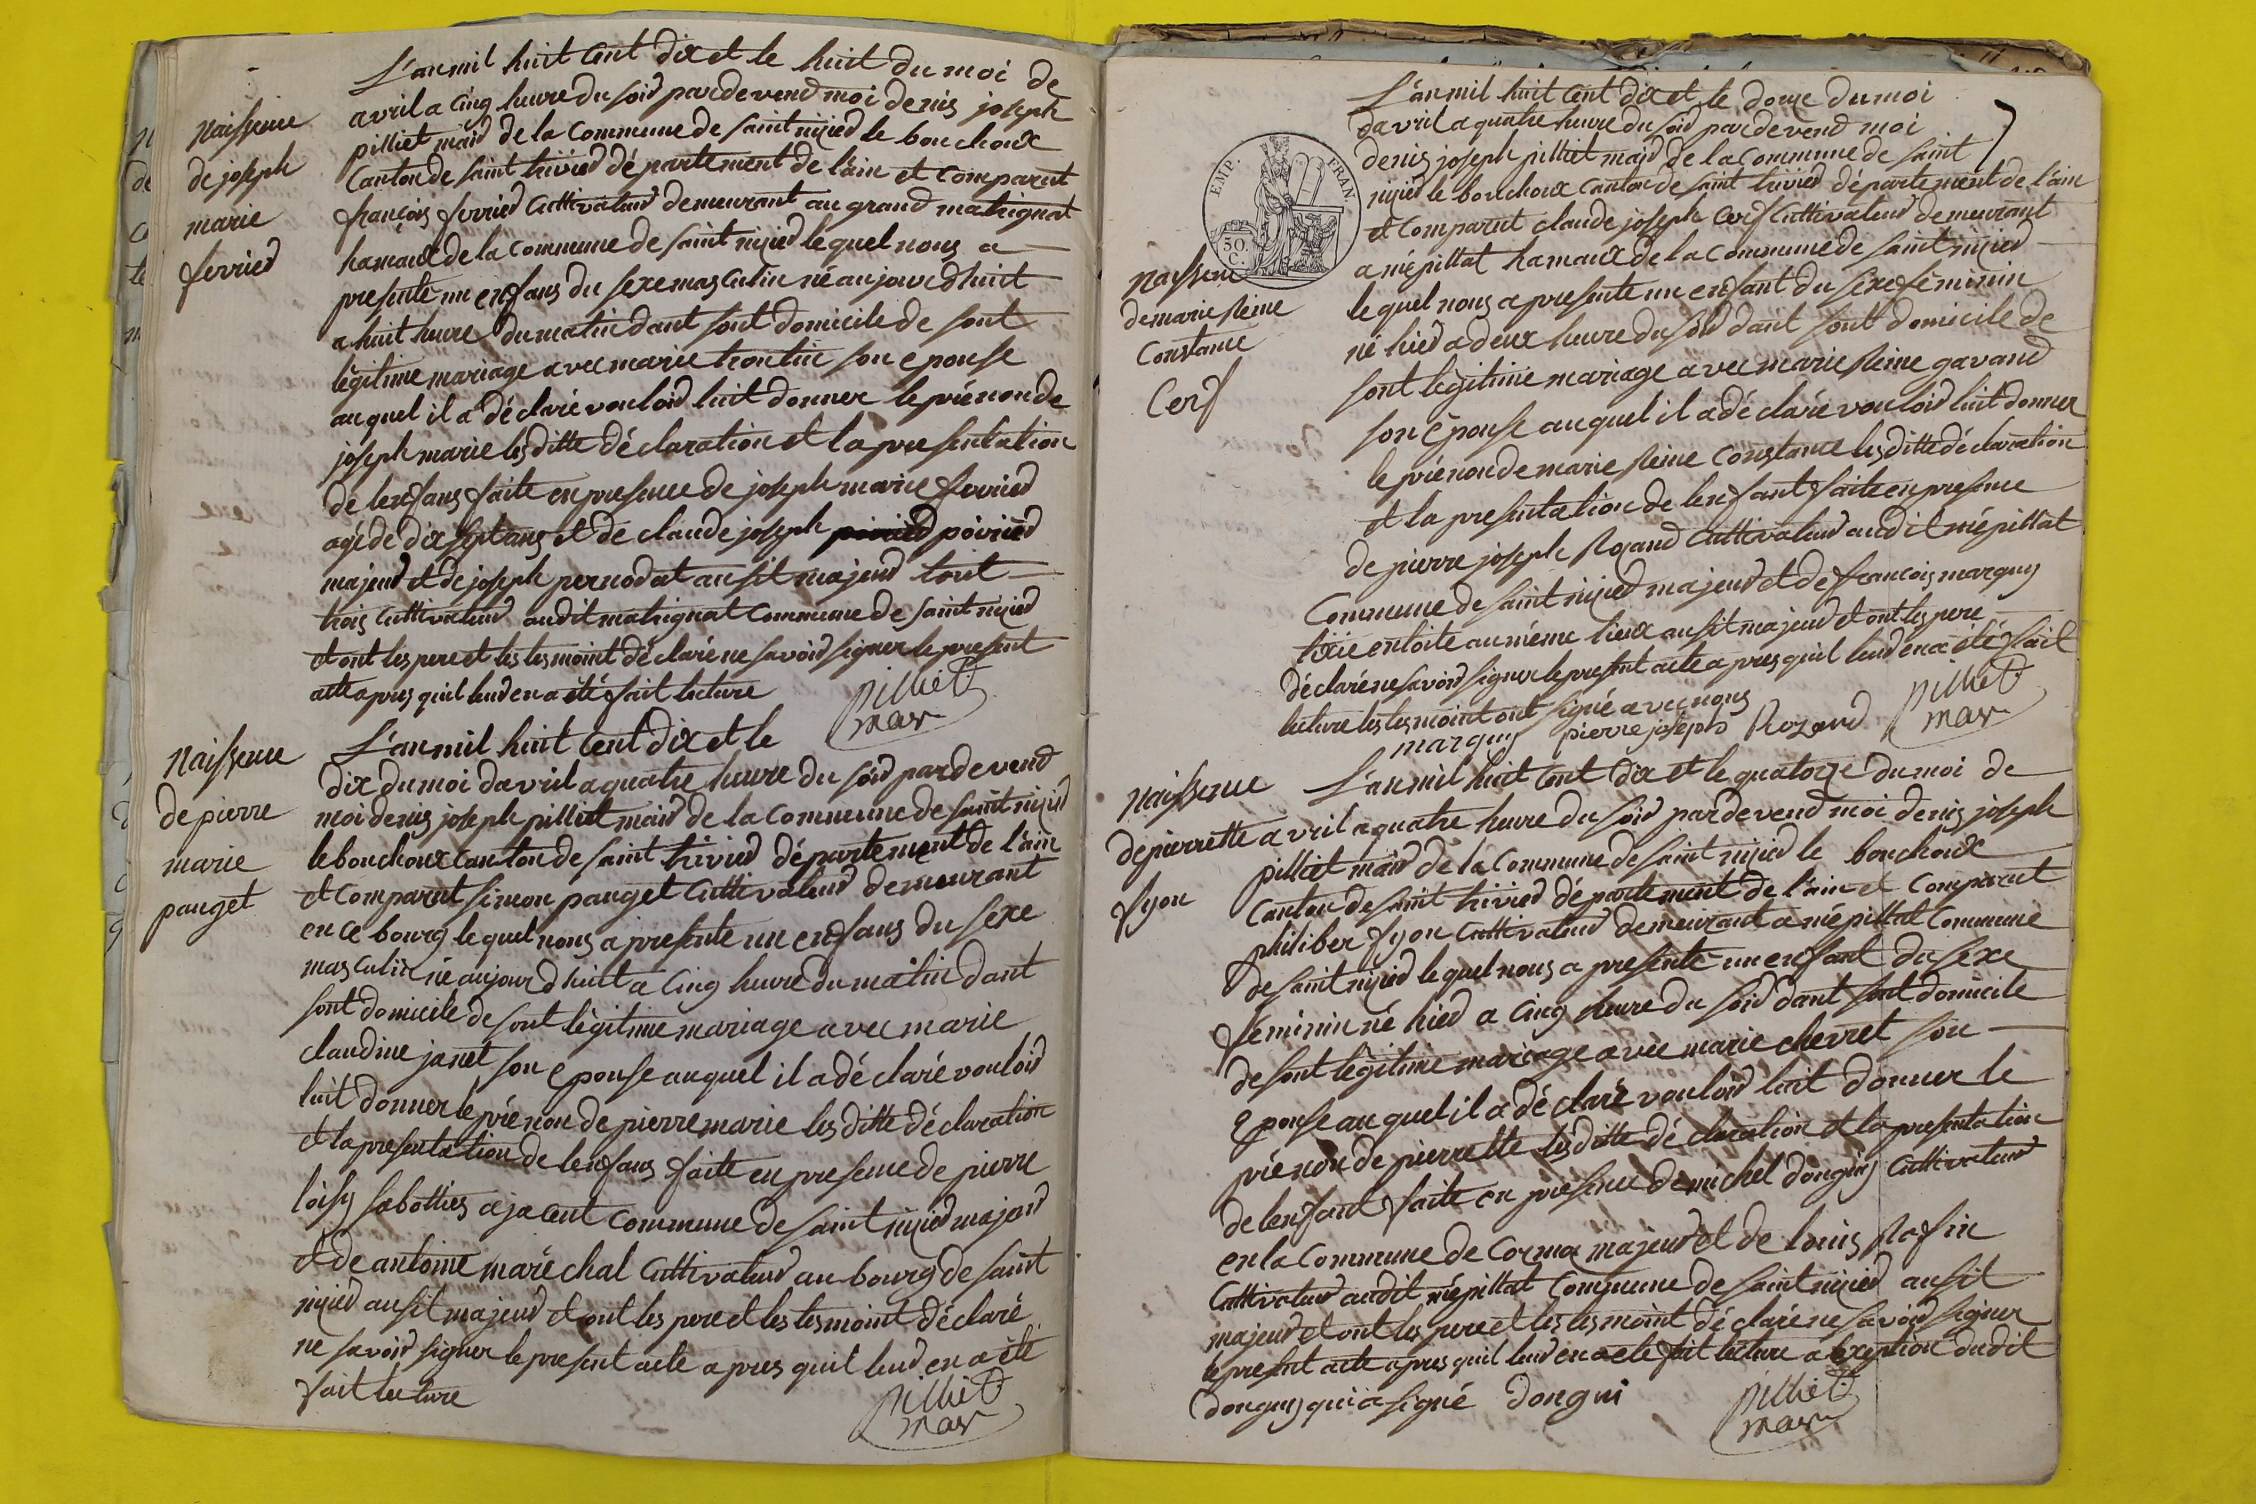 Naissence
de joseph
marie
ferried
L'an mil huit Cent dix et le huit du moi de
avril a Cinq heure du soid pardevend moi denis joseph
pilliet maid de la Commune de saint nizied le bouchoux
Canton de saint trivied département de l'ain et Comparut
françois ferried Cuttivateud demeurant au grand matrignat
hamaux de la Commune de saint nizied lequel nous a
presenté un enfans du sexe masculin né aujourdhuit
a huit heure du matin dant sont domicile de sont
légitime mariage avec marie trontin son epouse
auquel il a déclaré vouloid luit donner le prénon de
joseph marie lesditte déclaration et la presentation
de lenfans faite en presence de joseph marie ferried
agé de dix sept ans et de claude joseph poiried
majeud et de joseph pernodat ausit majeud tout
trois Cuttivateud audit matrignat Commune de saint nizied
et ont les pere et les tesmoint déclaré ne savoid signer le present
acte apres quil leud en a été fait lecture
pilliet
mar
Naissence
de pierre
marie
pauget
L'an mil huit Cent dix et le
dix du moi davril a quatre heure du soid pardevend
moi denis joseph pilliet maid de la Commune de saint nizied
le bouchoux Canton de saint trivied département de l'ain
et Comparut simon pauget Cuttivateud demeurant
en ce bourg lequel nous a presenté un enfans du sexe
masculin né aujourdhuit a Cinq heure du matin dant
sont domicile de sont légitime mariage avec marie
claudine janet son epouse auquel il a déclaré vouloid
luit donner le prénon de pierre marie lesditte déclaration
et la presentation de lenfans faite en presence de pierre
loisy sabotties a jacent Commune de saint nizied majeud
et de antoine maréchal Cuttivateud au bourg de saint
nizied ausit majeud et ont les pere et les tesmoint déclaré
ne savoid signer le present acte apres quil leud en a été
fait lecture
pilliet
mar
7
EMP. FRAN.
50.
C.
Naissence
de marie Reine
Constance
Cerf
L'an mil huit Cent dix et le douze du moi
davril a quatre heure du soid pardevend moi
denis joseph pilliet maid de la Commune de saint
nizied le bouchoux Canton de saint trivied département de l'ain
et Comparut claude joseph Cerf Cuttivateud demeurant
a mépillat hamaux de la Commune de saint nizied
lequel nous a presenté un enfant du sexe féminin
né hied a deux heure du soid dant sont domicile de
sont légitime mariage avec marie Reine gavand
son épouse auquel il a déclaré vouloid luit donner
le prénon de marie Reine Constance lesditte déclaration
et la presentation de lenfant faite en presence
de pierre joseph Rozand Cuttivateud audit mépillat
Commune de saint nizied majeud et de françois marguy
au même lieux ausit majeud et ont les pere
déclaré ne savoid signer le present acte apres quil leud en a été fait
lecture les tesmoint ont signé avec nous
marguy pierre joseph Rozand
pilliet
mar
Naissence
de pierrette
fyon
L'an mil huit Cent dix et le quatorze du moi de
avril a quatre heure du soid pardevend moi denis joseph
pilliet maid de la Commune de saint nizied le bouchoux
Canton de saint trivied département de l'ain et Comparut
philiber fyon Cuttivateud demeurant a mépillat Commune
de saint nizied lequel nous a presenté un enfant du sexe
féminin né hied a Cinq heure du soid dant sont domicile
de sont légitime mariage avec marie chevret son
epouse auquel il a déclaré vouloid luit donner le
prénon de pierrette lesditte déclaration et la presentation
de lenfant faite en présence de michel donguy Cuttivateud
en la Commune de Cormox majeud et de louis Rafin
Cuttivateud audit mépillat Commune de saint nizied ausit
majeud et ont les pere et les tesmoint déclaré ne savoid signer
le present acte apres quil leud en a été fait lecture a exeption dudit
donguy qui a signé donguy
pilliet
mar